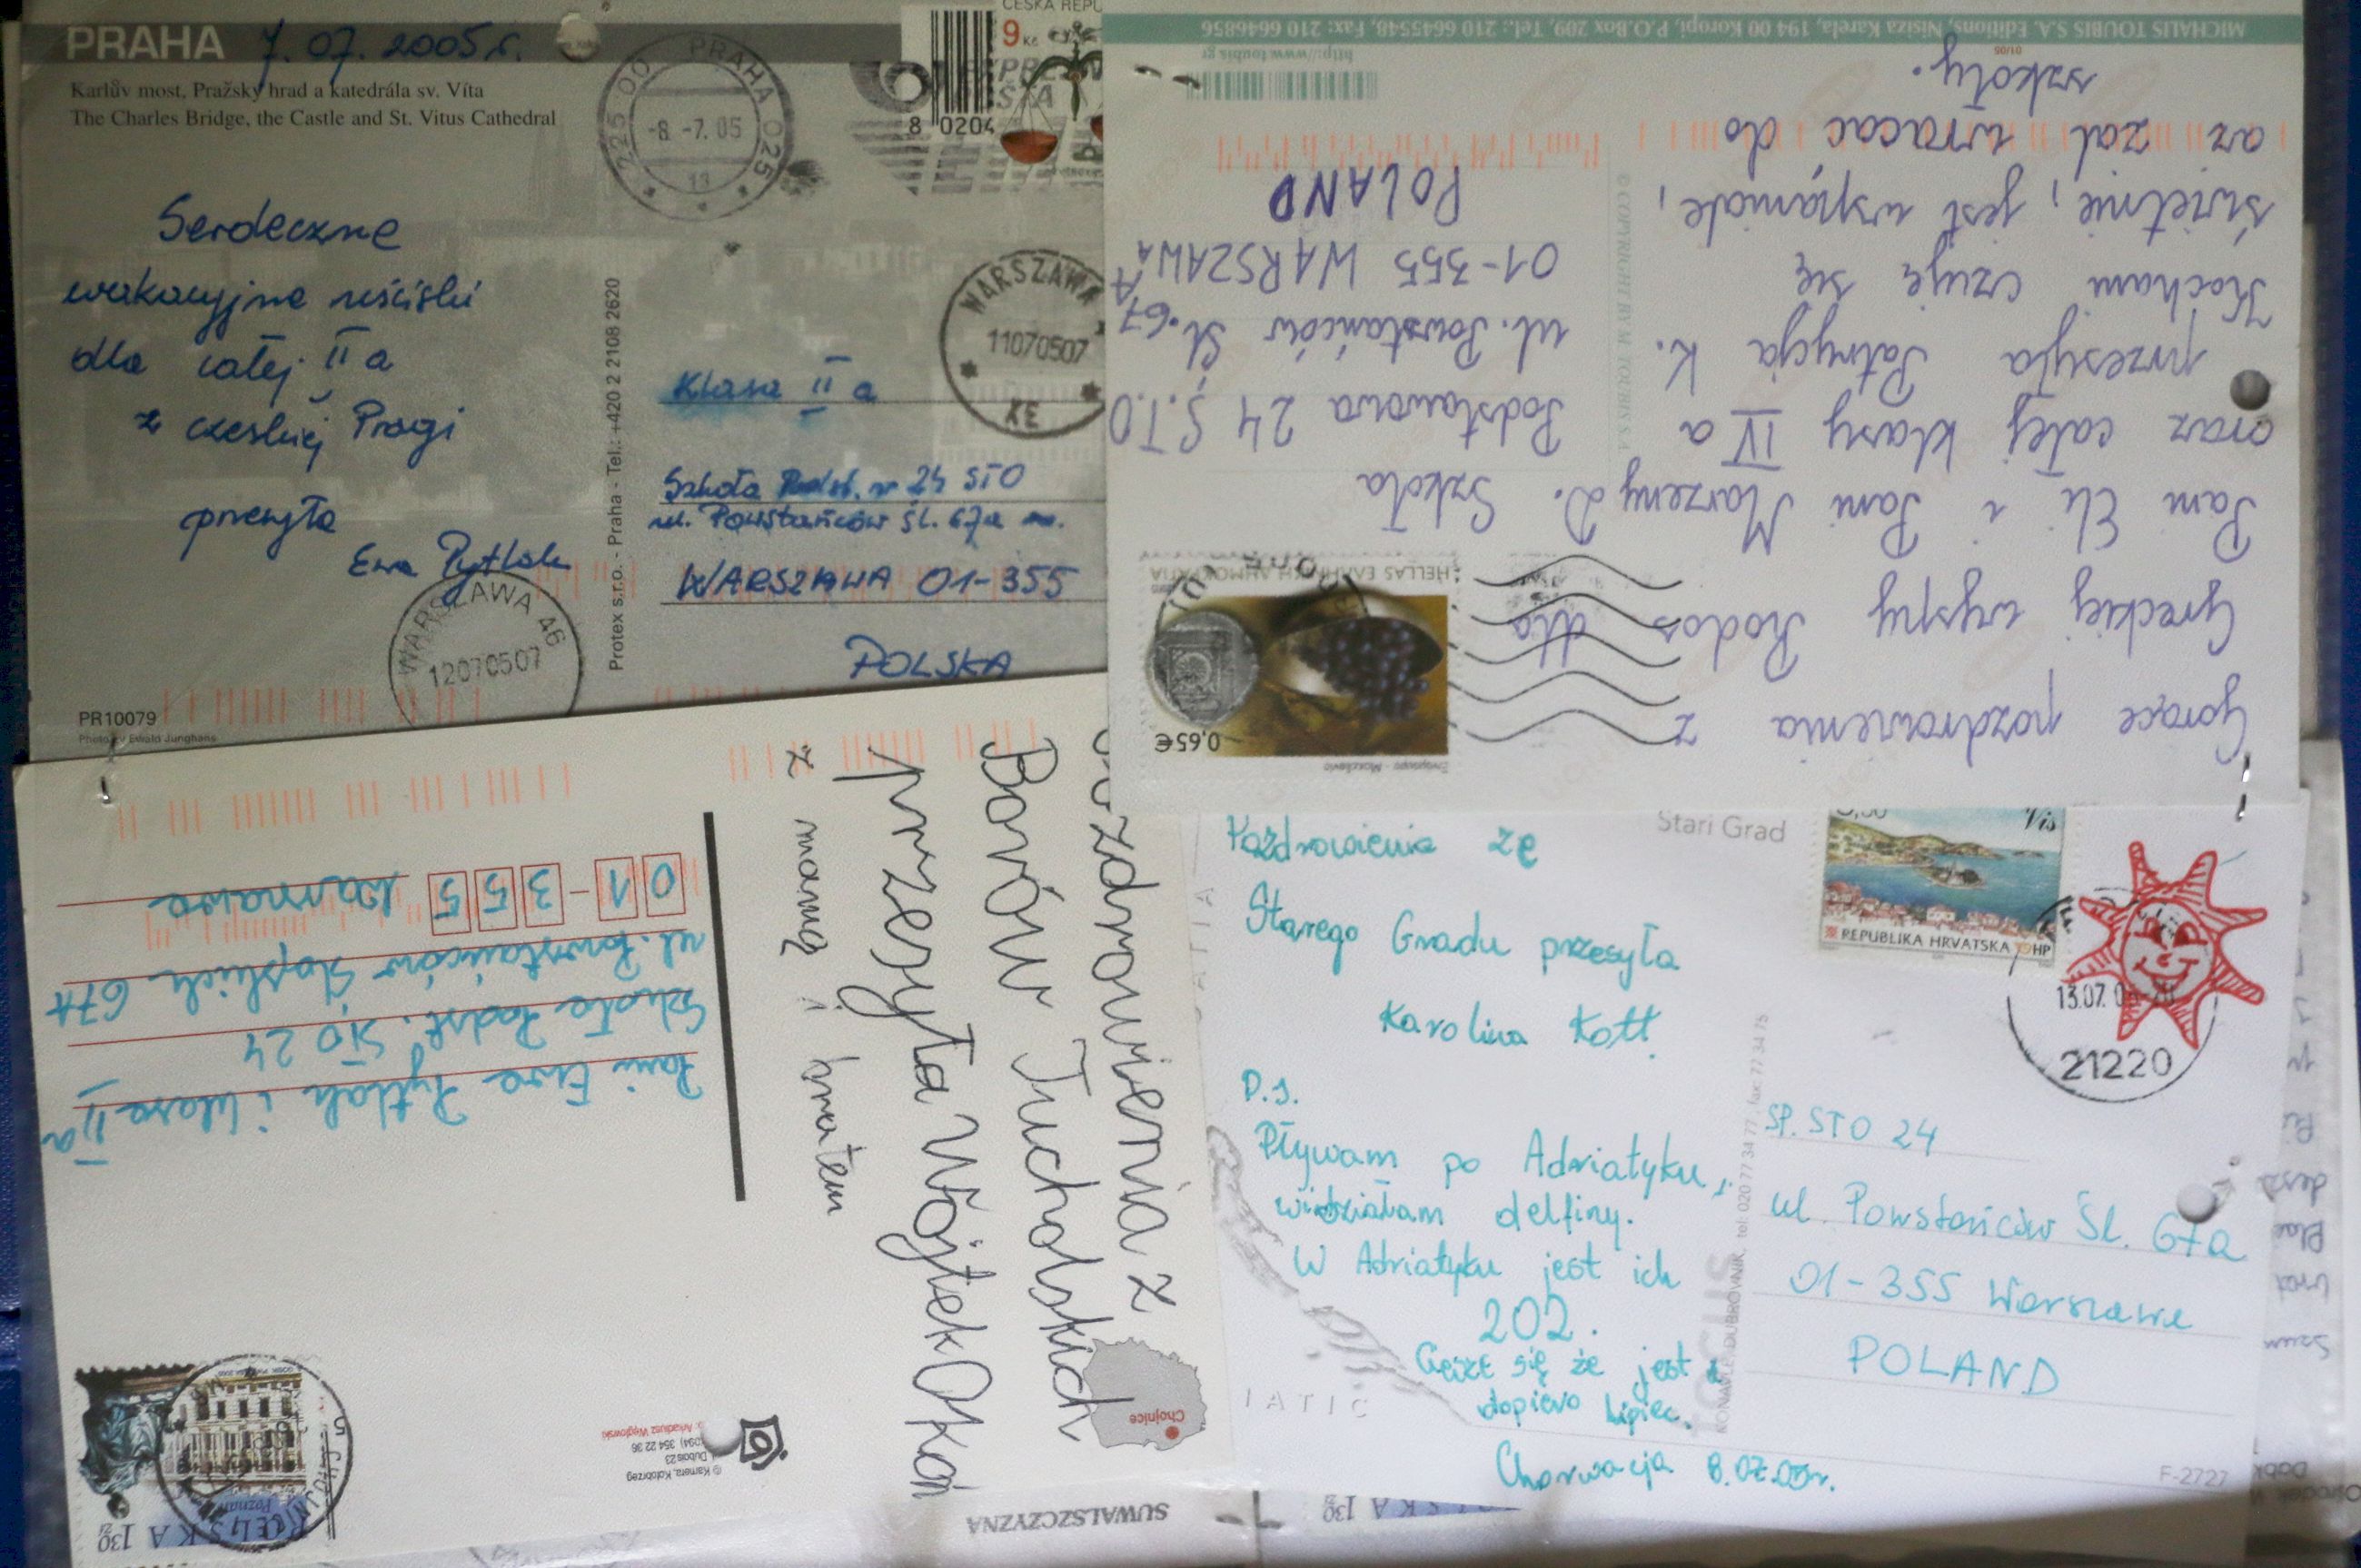 PRAHA 7.07.2005 r.
Karlův most, Pražský hrad a katedrála sv. Víta
The Charles Bridge, the Castle and St. Vitus Cathedral
225 00 PRAHA 025
-8.-7.05
13
ČESKÁ REPU
9 Kč
8 0204
Serdeczne
wakacyjne uściski
dla całej II a
z czeskiej Pragi
przesyła
Ewa Pytlak
WARSZAWA 46
12070507
PR10079
Photo by Ewald Junghans
Protex s.r.o. - Praha - Tel.: +420 2 2108 2620
WARSZAWA
11070507
XE
Klasa II a
Szkoła Podst. nr 24 STO
ul. Powstańców Śl. 67a
WARSZAWA 01-355
POLSKA
MICHALIS TOUBIS S.A. Editions, Nisiza Karela, 194 00 Koropi, P.O.Box 209, Tel.: 210 6645548, Fax: 210 6646856
http://www.toubis.gr
Gorące pozdrowienia z
Greckiej wyspy Rodos dla
Pani Eli i Pani Marzeny D.
oraz całej klasy IV a
przesyła Patrycja K.
Kocham czuję się
świetnie, jest wspaniale,
aż żal wracać do
szkoły.
© COPYRIGHT BY M. TOUBIS S.A.
0,65€
HELLAS ΕΛΛΗΝΙΚΗ ΔΗΜΟΚΡΑΤΙΑ
Szkoła
Podstawowa 24 S.T.O
ul. Powstańców Śl. 67A
01-355 WARSZAWA
POLAND
Pozdrowienia z
Borów Tucholskich
przesyła Wojtek Okoń
z mamą i bratem
Chojnice
Pani Ewa Pytlak i klasa II a
Szkoła Podst. STO 24
ul. Powstańców Śląskich 67A
01-355 Warszawa
© Kamera, Kołobrzeg
Dubois 23
(094) 354 22 36
Arkadiusz Węglowski
Poznań
POLSKA 130 zł
SUWALSZCZYZNA
Stari Grad
Pozdrowienia ze
Starego Gradu przesyła
Karolina Kott.
P.S.
Pływam po Adriatyku,
widziałam delfiny.
W Adriatyku jest ich
202.
Cieszę się że jest
dopiero lipiec.
Chorwacja 8.07.05r.
Vis
REPUBLIKA HRVATSKA HP
13.07.
21220
SP. STO 24
ul. Powstańców Śl. 67a
01-355 Warszawa
POLAND
KONAVLE, DUBROVNIK, tel: 020 77 34 77, fax: 77 34 75
F-2727